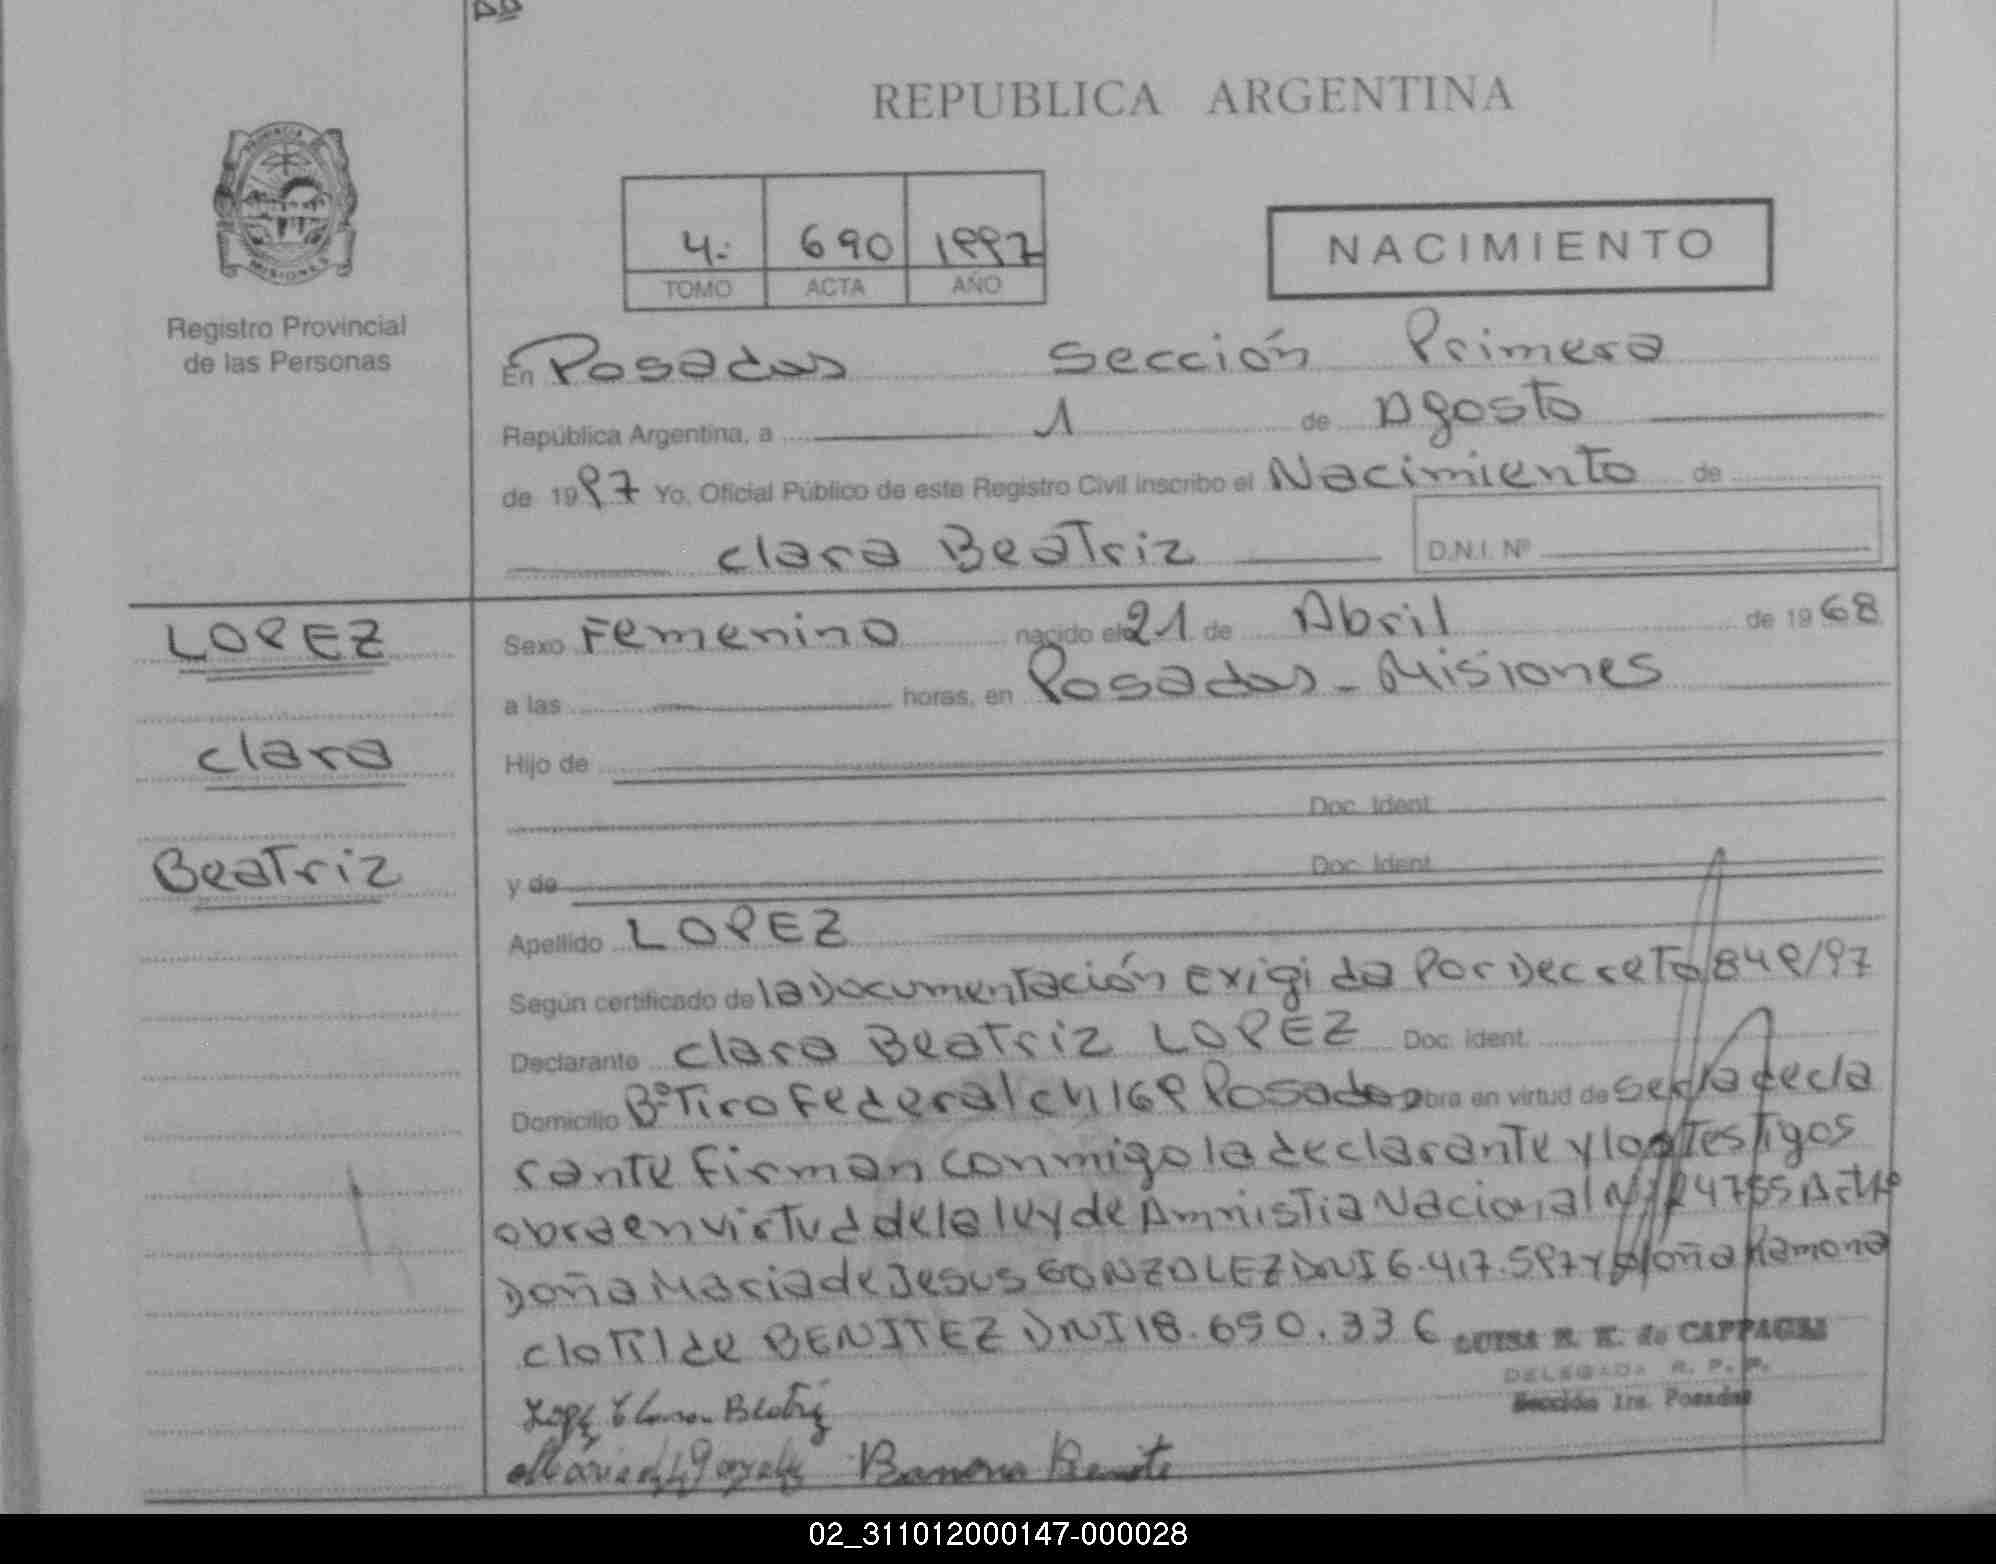 REPUBLICA ARGENTINA
PROVINCIA
MISIONES
Registro Provincial
de las Personas
4. 690 1997
TOMO ACTA AÑO
NACIMIENTO
En Posadas Sección Primera
República Argentina, a 1 de Agosto
de 1997 Yo, Oficial Público de este Registro Civil inscribo el Nacimiento de
clara Beatriz D.N.I. Nº
LOPEZ
clara
Beatriz
Sexo Femenino nacido el 21 de Abril de 1968
a las horas, en Posadas - Misiones
Hijo de
Doc. Ident.
y de Doc. Ident.
Apellido LOPEZ
Según certificado de la Documentación exigida Por Decreto 849/97
Declarante clara Beatriz LOPEZ Doc. Ident.
Domicilio Bº Tiro Federal ch 169 Posadas obra en virtud de ser la decla
rante Firman conmigo la declarante y los Testigos
obra en virtud de la ley de Amnistia Nacional Nº 24755 Actúa
Doña Maria de Jesus GONZALEZ DNI 6.417.597 y Doña Ramona
cloTilde BENITEZ DNI 18.690.336
LUISA R. K. de CAPPAGLI
DELEGADA R. P. P.
Sección 1ra. Posadas
Lopez Clara Beatriz
Maria de J. Gonzalez Ramona Benite
02_311012000147-000028